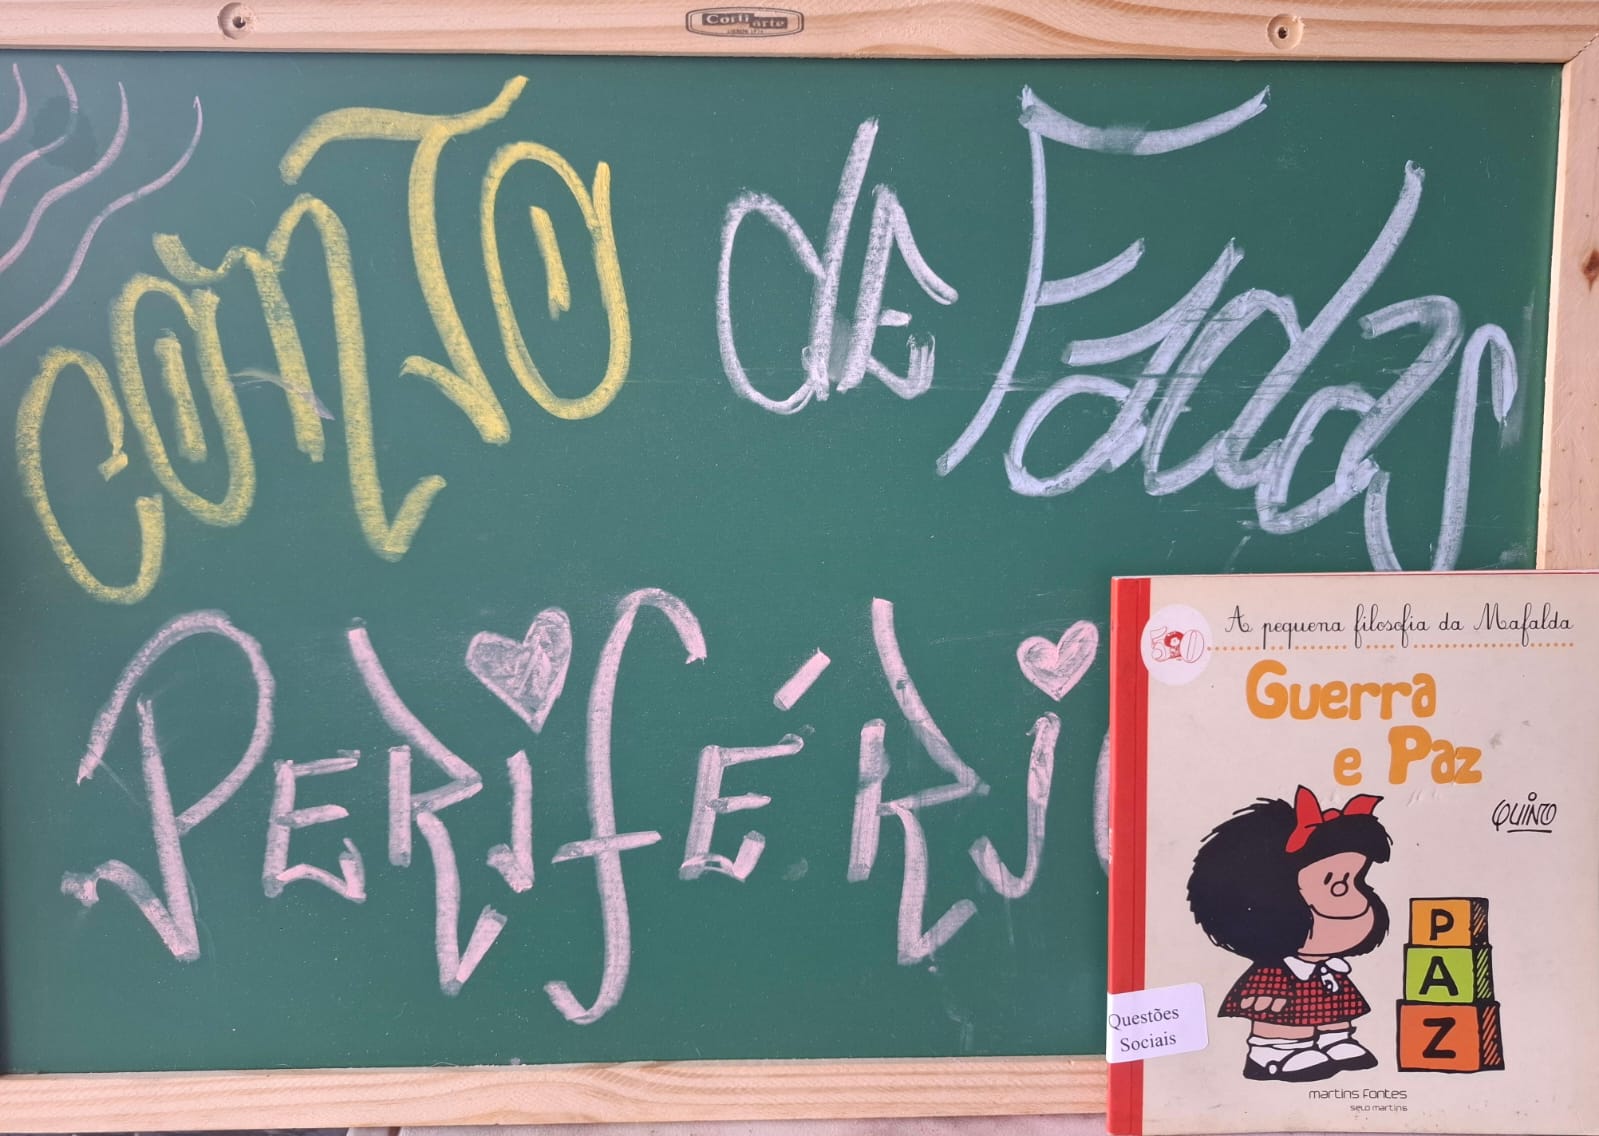 Corti arte
CONTO de Fadas
PERIFÉRIC
50
A pequena filosofia da Mafalda
Guerra
e Paz
QUINO
P
A
Z
Questões
Sociais
martins fontes
selo martins